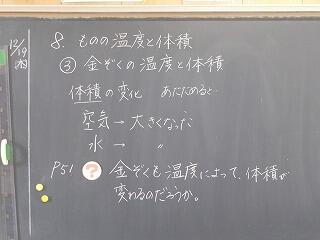 12/19
水
8. ものの温度と体積
③ 金ぞくの温度と体積
体積の変化 あたためると…
空気→大きくなった
水 → 〃
P51 ? 金ぞくも温度によって、体積が
変わるのだろうか。